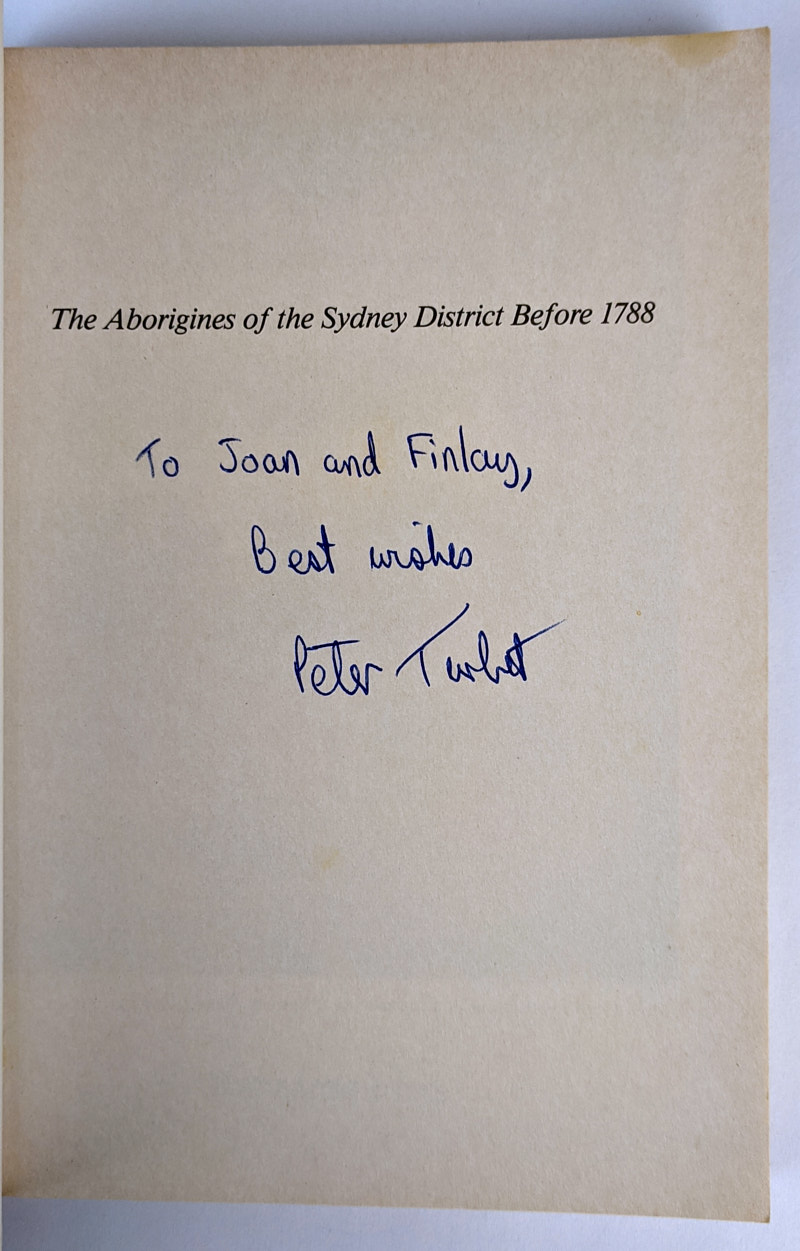 The Aborigines of the Sydney District Before 1788
To Joan and Finlay,
Best wishes
Peter Turbet